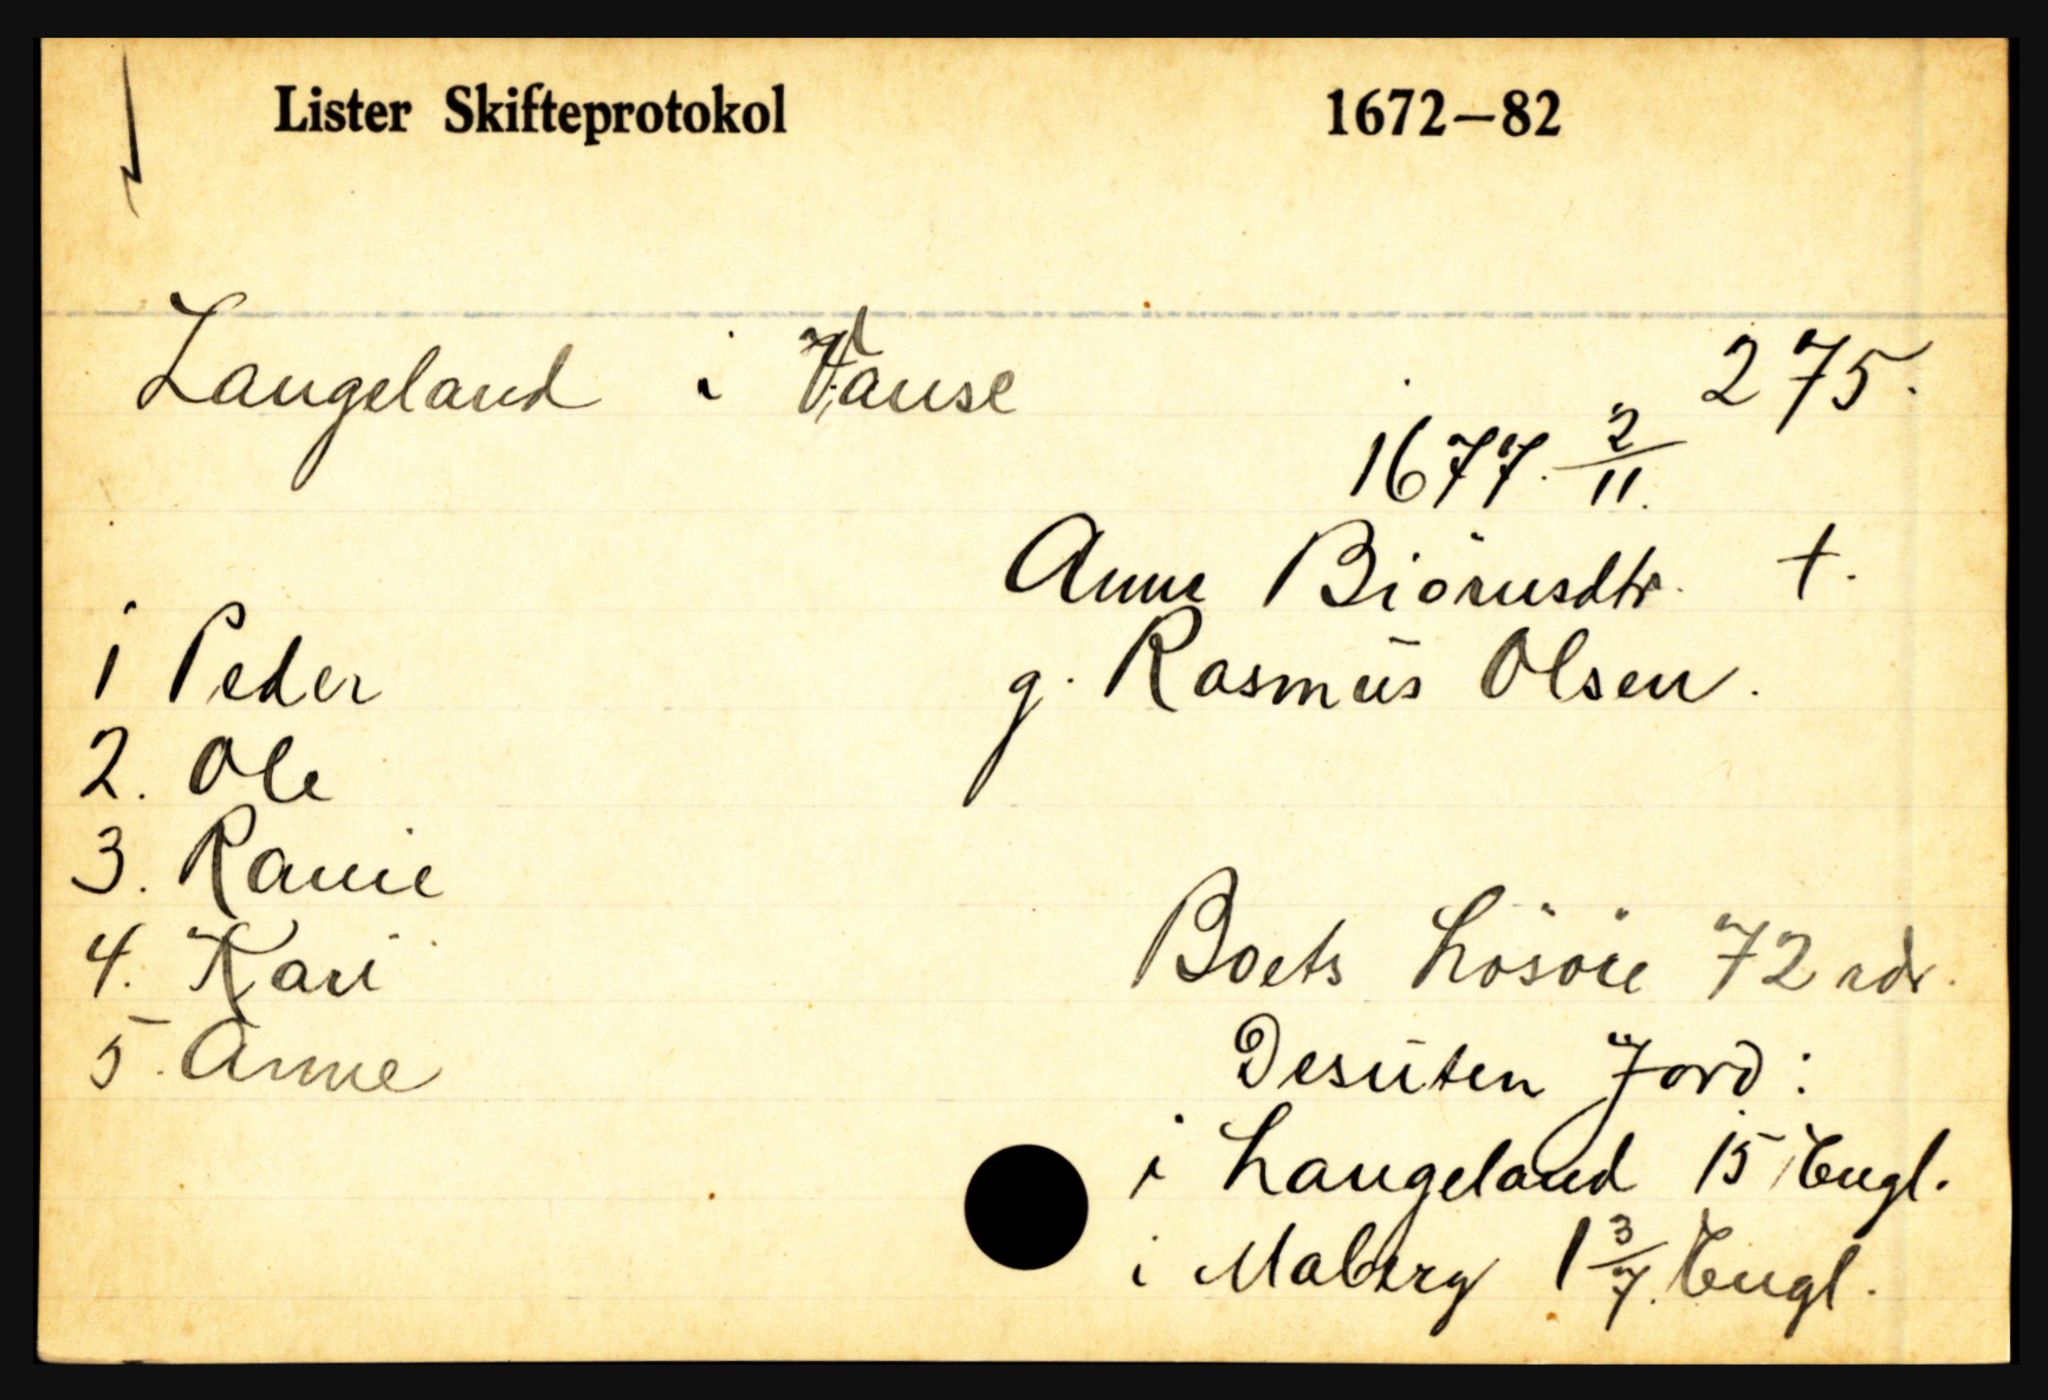 Lister Skifteprotokol 1672—82
Langeland i Vanse 275.
1677. 2/11.
Anne Biörnsdtr. †.
1 Peder
g. Rasmus Olsen.
2. Ole
3. Ranie
4. Kari
Boets Lösöre 72 rdr.
5. Anne
Desuten Jord:
i Langeland 15 Engl.
i Maberg 1 3/7. Engl.